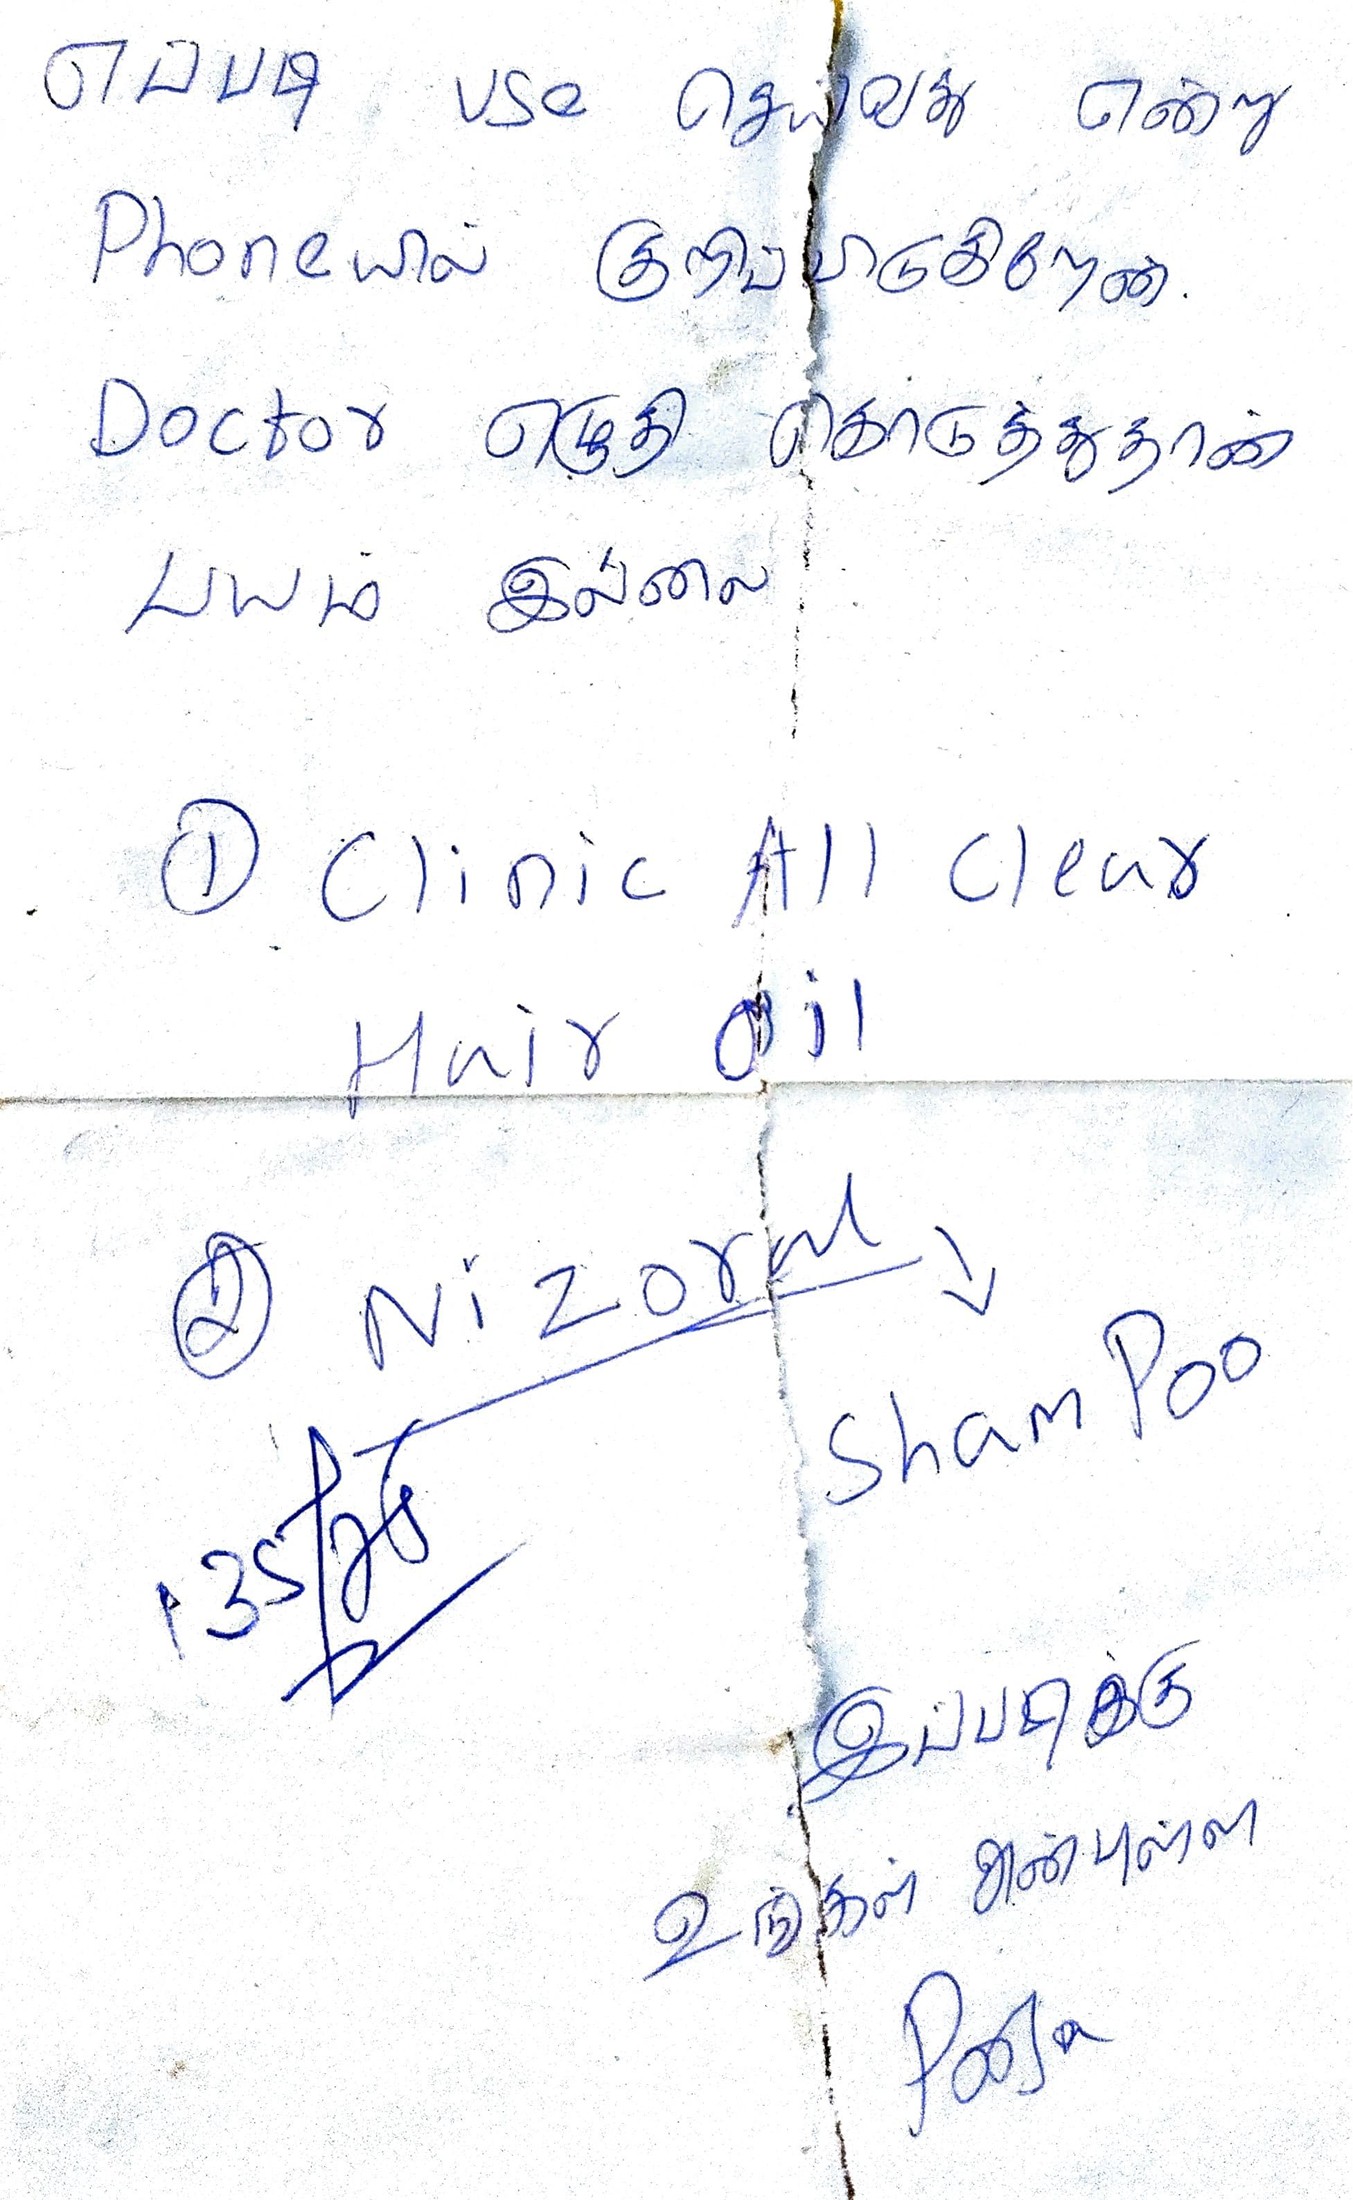 எப்படி use செய்வது என்று
Phoneயில் குறிப்பிடுகிறேன்.
Doctor எழுதி கொடுத்துதான்
பயம் இல்லை
① Clinic All Clear
Hair Oil
② Nizoral
ShamPoo
135/25
இப்படிக்கு
உங்கள் அன்புள்ள